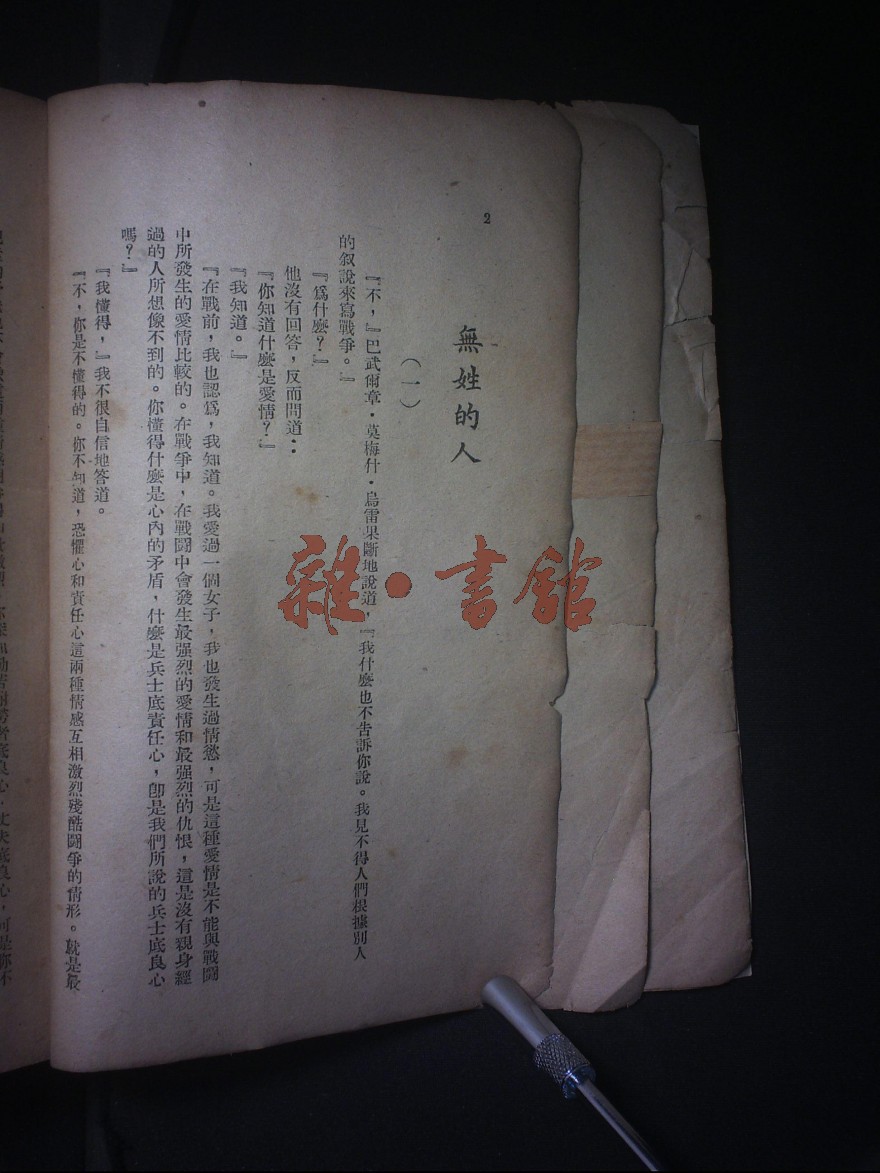 2
無姓的人
（一）
『不，』巴武爾章·莫梅什·烏雷果斷地說道，『我什麼也不告訴你說。我見不得人們根據別人
的叙說來寫戰爭。』
『爲什麼？』
他沒有回答，反而問道：
『你知道什麼是愛情？』
『我知道。』
『在戰前，我也認爲，我知道。我愛過一個女子，我也發生過情慾，可是這種愛情是不能與戰鬪
中所發生的愛情比較的。在戰爭中，在戰鬪中會發生最强烈的愛情和最强烈的仇恨，這是沒有親身經
過的人所想像不到的。你懂得什麼是心內的矛盾，什麼是兵士底責任心，卽是我們所說的兵士底良心
嗎？』
『我懂得，』我不很自信地答道。
『不，你是不懂得的。你不知道，恐懼心和責任心這兩種情感互相激烈殘酷鬪爭的情形。就是最
雜·書館